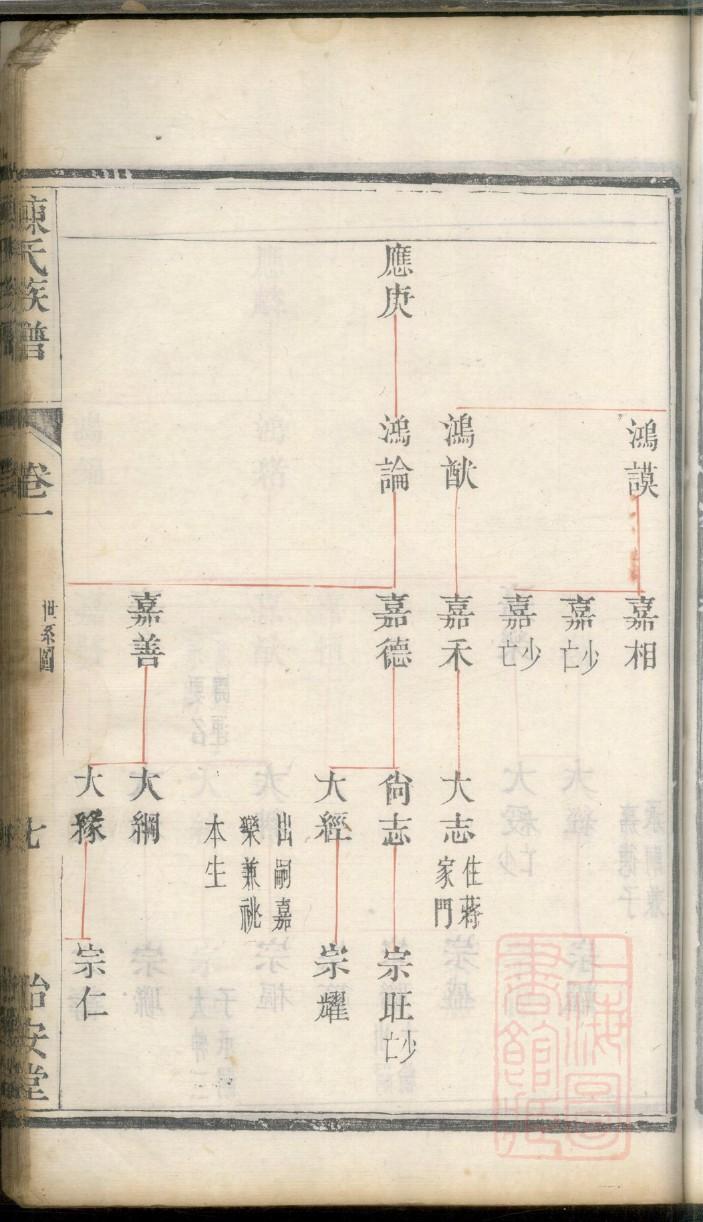 應庚
鴻謨
鴻猷
鴻論
嘉相
嘉
少亡
嘉
少亡
嘉禾
嘉德
嘉善
大志
住蔣家門
尙志
大經
出嗣嘉
樂兼祧
本生
大綱
大
宗旺
少亡
宗耀
宗仁
陳氏族譜
卷一
世系圖
七
怡安堂
上海圖書館藏